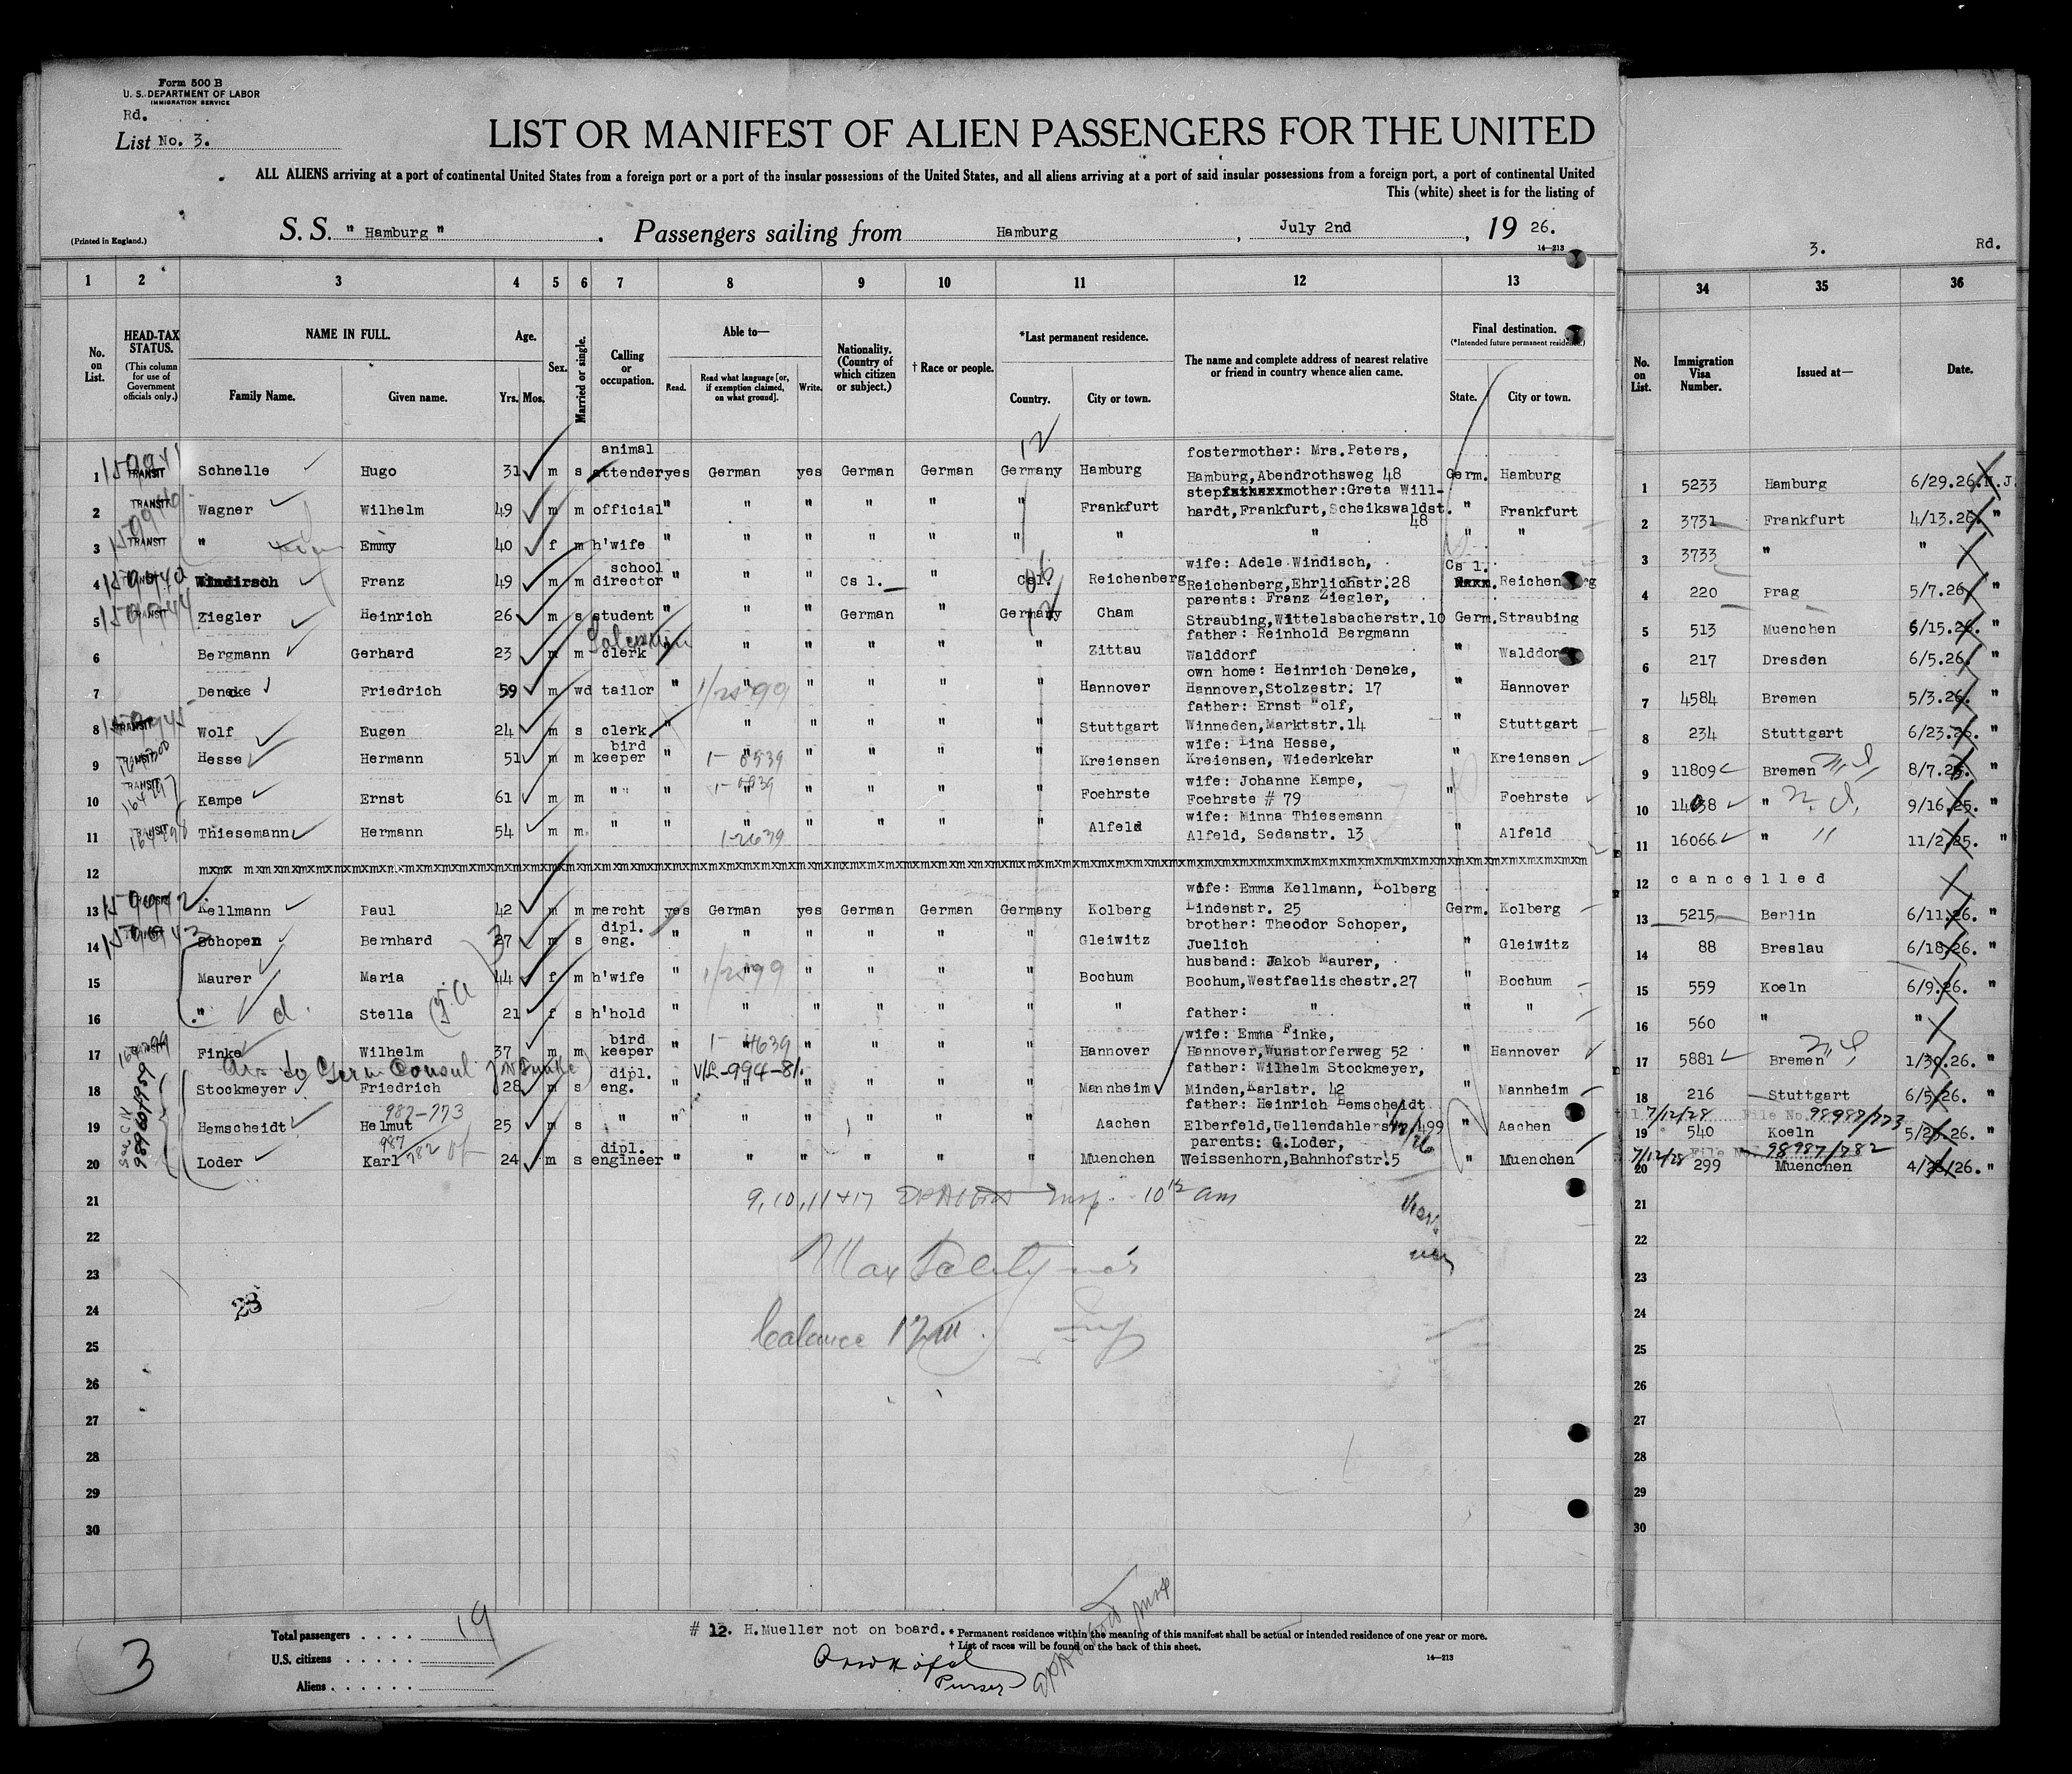 Form 500 B
U. S. DEPARTMENT OF LABOR
IMMIGRATION SERVICE
Rd.
List No. 3.
LIST OR MANIFEST OF ALIEN PASSENGERS FOR THE UNITED
ALL ALIENS arriving at a port of continental United States from a foreign port or a port of the insular possessions of the United States, and all aliens arriving at a port of said insular possessions from a foreign port, a port of continental United
This (white) sheet is for the listing of
(Printed in England.)
S. S. " Hamburg " . Passengers sailing from Hamburg , July 2nd , 19 26.
14—213
3. Rd.
1 2 3 4 5 6 7 8 9 10 11 12 13 34 35 36
No. on List.
HEAD-TAX STATUS.
(This column for use of Government officials only.)
NAME IN FULL.
Family Name. Given name.
Age.
Yrs. Mos.
Sex.
Married or single.
Calling or occupation.
Able to—
Read. Read what language [or, if exemption claimed, on what ground]. Write.
Nationality. (Country of which citizen or subject.)
† Race or people.
*Last permanent residence.
Country. City or town.
The name and complete address of nearest relative or friend in country whence alien came.
Final destination.
(*Intended future permanent residence.)
State. City or town.
No. on List.
Immigration Visa Number.
Issued at—
Date.
12
animal fostermother: Mrs.Peters,
1 TRANSIT Schnelle Hugo 31 m s attender yes German yes German German Germany Hamburg Hamburg,Abendrothsweg 48 Germ. Hamburg 1 5233 Hamburg 6/29.26. N.J.
mother:Greta Will-
2 TRANSIT Wagner Wilhelm 49 m m official " " " " " " Frankfurt hardt,Frankfurt,Scheikswaldst. " Frankfurt 2 3731 Frankfurt 4/13.26. "
48
3 TRANSIT " Emmy 40 f m h'wife " " " " " " " " " " 3 3733 " "
school wife: Adele Windisch, Cs l.
4 Windirsch Franz 49 m m director " " " Cs l. " Csl. Reichenberg Reichenberg,Ehrlichstr.28 Reichenberg 4 220 Prag 5/7.26. "
parents: Franz Ziegler,
5 TRANSIT Ziegler Heinrich 26 m s student " " " German " Germany Cham Straubing,Wittelsbacherstr.10 Germ. Straubing 5 513 Muenchen 6/15.26. "
Salesman father: Reinhold Bergmann
6 Bergmann Gerhard 23 m m clerk " " " " " " Zittau Walddorf " Walddorf 6 217 Dresden 6/5.26. "
own home: Heinrich Deneke,
7 Deneke Friedrich 59 m wd tailor " " " " " " Hannover Hannover,Stolzestr. 17 " Hannover 7 4584 Bremen 5/3.26. "
father: Ernst "olf,
8 TRANSIT Wolf Eugen 24 m s clerk " " " " " " Stuttgart Winneden,Marktstr.14 " Stuttgart 8 234 Stuttgart 6/23.26. "
bird wife: Lina Hesse,
9 TRANSIT Hesse Hermann 51 m m keeper " " " " " " Kreiensen Kreiensen, Wiederkehr " Kreiensen 9 11809 Bremen 8/7.25. "
wife: Johanne Kampe,
10 TRANSIT Kampe Ernst 61 m m " " " " " " " " Foehrste Foehrste # 79 " Foehrste 10 14038 " 9/16.25. "
wife: Minna Thiesemann
11 TRANSIT Thiesemann Hermann 54 m m. " " " " " " " Alfeld Alfeld, Sedanstr. 13 " Alfeld 11 16066 " 11/2.25. "
12 12 cancelled
wife: Emma Kellmann, Kolberg
13 Kellmann Paul 42 m m mercht yes German yes German German Germany Kolberg Lindenstr. 25 Germ. Kolberg 13 5215 Berlin 6/11.26. "
dipl. brother: Theodor Schoper,
14 Schopen Bernhard 27 m s eng. " " " " " " Gleiwitz Juelich " Gleiwitz 14 88 Breslau 6/18.26. "
husband: Jakob Maurer,
15 Maurer Maria 44 f m h'wife " " " " " " Bochum Bochum,Westfaelischestr.27 " Bochum 15 559 Koeln 6/9.26. "
16 " Stella 21 f s h'hold " " " " " " " father: " " " 16 560 " "
bird wife: Emma Finke,
17 Finke Wilhelm 37 m m keeper " " " " " " Hannover Hannover,Wunstorferweg 52 " Hannover 17 5881 Bremen 1/30.26. "
dipl. father: Wilhelm Stockmeyer,
18 Stockmeyer Friedrich 28 m s eng. " " " " " " Mannheim Minden,Karlstr. 42 " Mannheim 18 216 Stuttgart 6/5.26. "
987-773 father: Heinrich Hemscheidt 7/12/28 File No. 98987/773
19 Hemscheidt Helmut 25 m s " " " " " " " Aachen " Aachen 19 540 Koeln "
dipl. parents: G.Loder, 7/12/28 File No. 98987/782
20 Loder Karl 24 m s engineer " " " " " " Muenchen Weissenhorn,Bahnhofstr.5 " Muenchen 20 299 Muenchen 4/26/26. "
21 9, 10, 11 + 17 21
22 22
23 23
24 24
25 balance 25
26 26
27 27
28 28
29 29
30 30
Total passengers . . . . 19
U.S. citizens . . . . .
Aliens . . . . . .
3
# 12. H.Mueller not on board.
* Permanent residence within the meaning of this manifest shall be actual or intended residence of one year or more.
† List of races will be found on the back of this sheet.
14—213
Purser